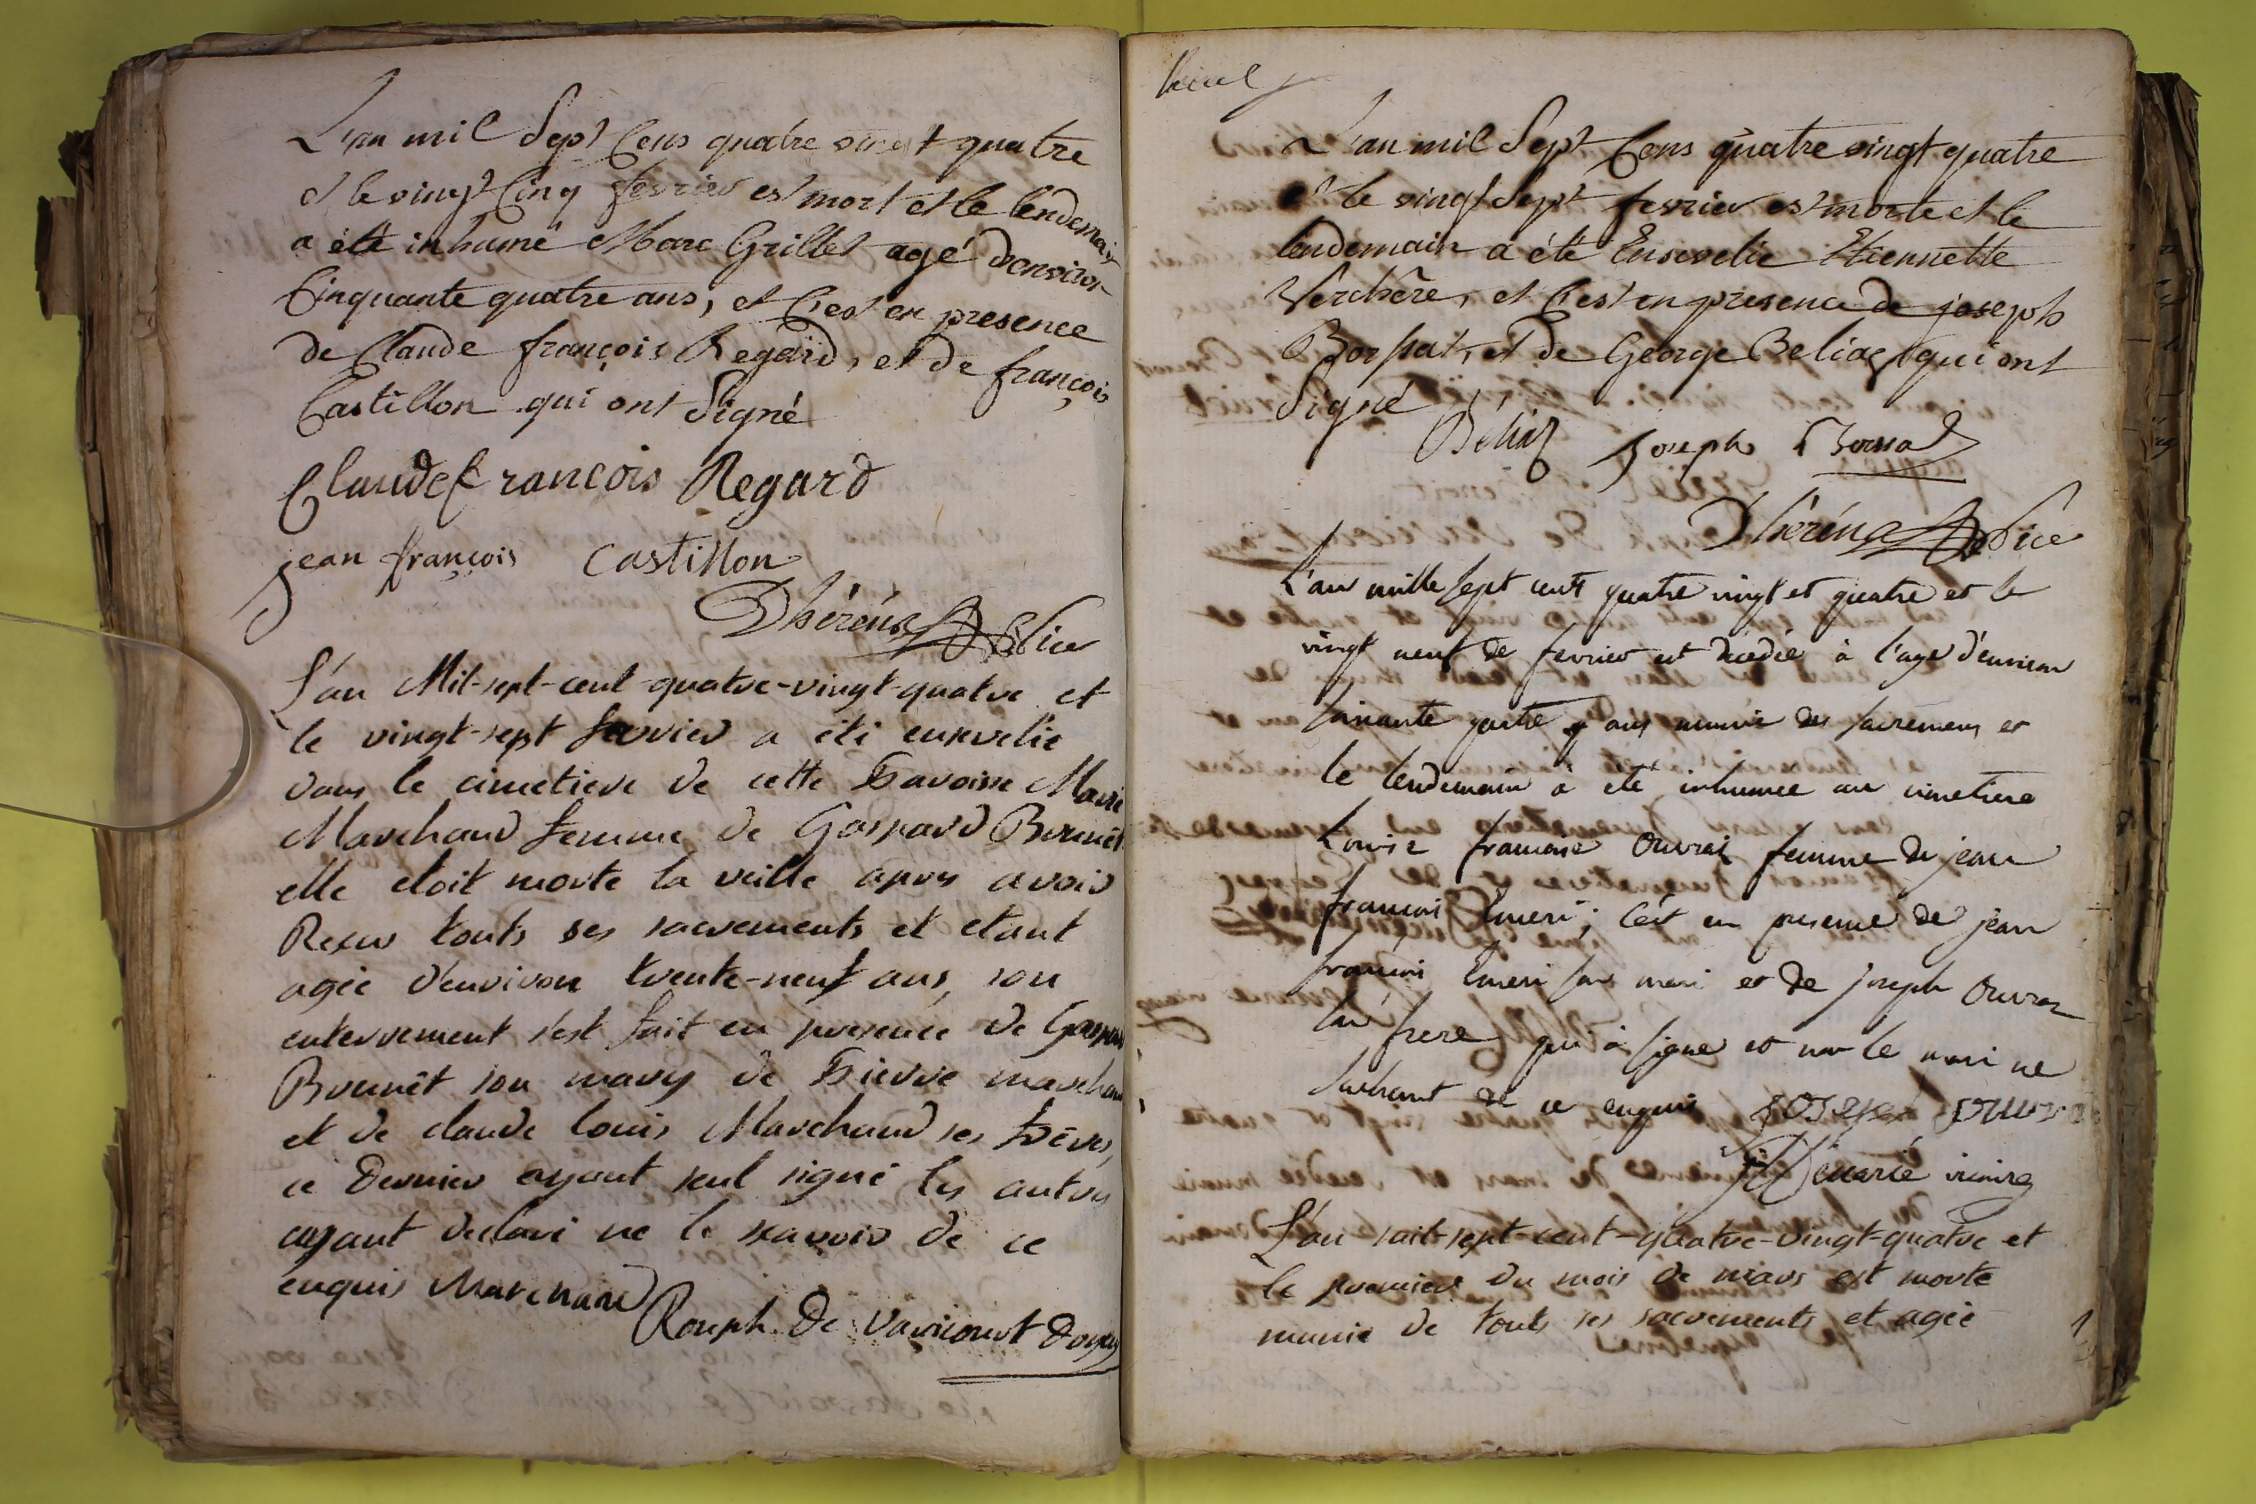 L'an mil Sept Cens quatre vingt quatre
et le vingt Cinq fevrier est mort et le lendemain
a été inhumé Marc Grillet agé d'environ
Cinquante quatre ans, et C'est en presence
de Claude françois Regard, et de françois
Castillon qui ont Signé
Claude francois Regard
jean françois castillon
Dhéréns Vice
L'an Mil-sept-cent-quatre-vingt-quatre et
le vingt-sept fevrier a été ensevelie
dans le cimetiere de cette Paroisse Marie
Marchand femme de Gaspard Brunêt
elle etoit morte la veille apres avoir
Recu touts ses sacrements et etant
agée d'environ trente-neuf ans, son
enterrement s'est fait en presence de Gaspard
Brunêt son mary de Pierre marchand
et de claude louis Marchand ses frères,
ce Dernier ayant seul signé les autres
ayant declaré ne le scavoir de ce
enquis Marchand
Rouph De Varicourt Doyen
L'an mil Sept Cens quatre vingt quatre
et le vingt Sept fevrier est morte et le
lendemain a été Ensevelie Etiennette
Verchère, et C'est en presence de joseph
Borsat, et de George Beliaz qui ont
Signé
Béliaz Joseph Borsat
Dhéréns Vice
L'an mille sept cent quatre vingt et quatre et le
vingt neuf de fevrier est décédée à l'age d'environ
soixante quatre ans munie des sacremens et
le lendemain à eté inhumée au cimetiere
Louise francoise Ouvrai femme de jean
francois Emeri; c'est en presence de jean
francois Emeri son mari et de joseph Ouvra
son frere qui à signé et non le mari ne
sachant de ce enquis Josepe ouvra
vicaire
L'an mil-sept-cent-quatre-vingt-quatre et
le premier du mois de mars est morte
munie de touts ses sacrements et agée